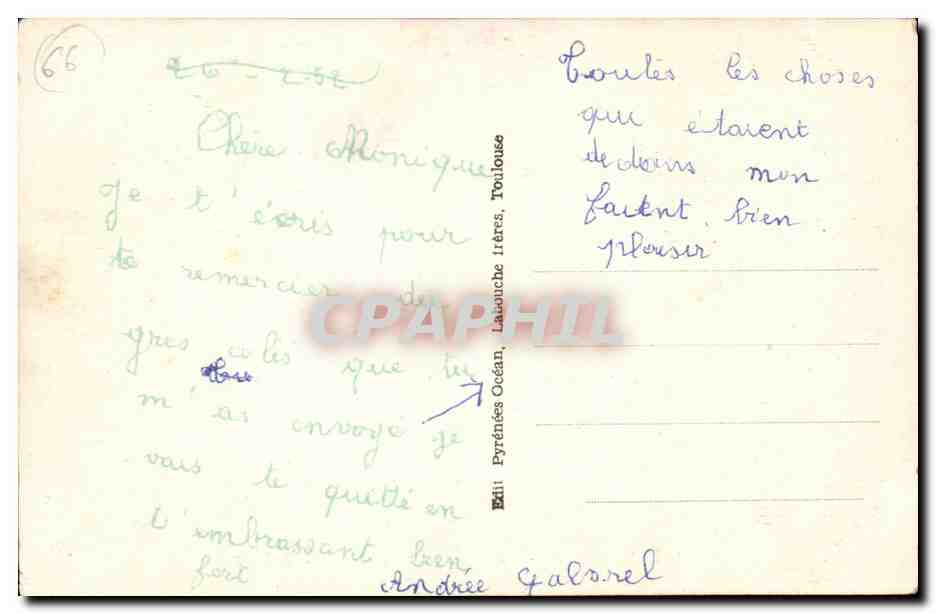 66
26 - 2.52
Chère Monique
Je t'écris pour
te remercier du
gres colis que tu
m'as envoyé je
vais te quetté en
t'embrassant bien
fort
Toutes les choses
qui étaient
dedains mon
faient bien
plaisir
Andrée Gabriel
Edit Pyrénées Océan, Labouche frères, Toulouse
CPAPHIL